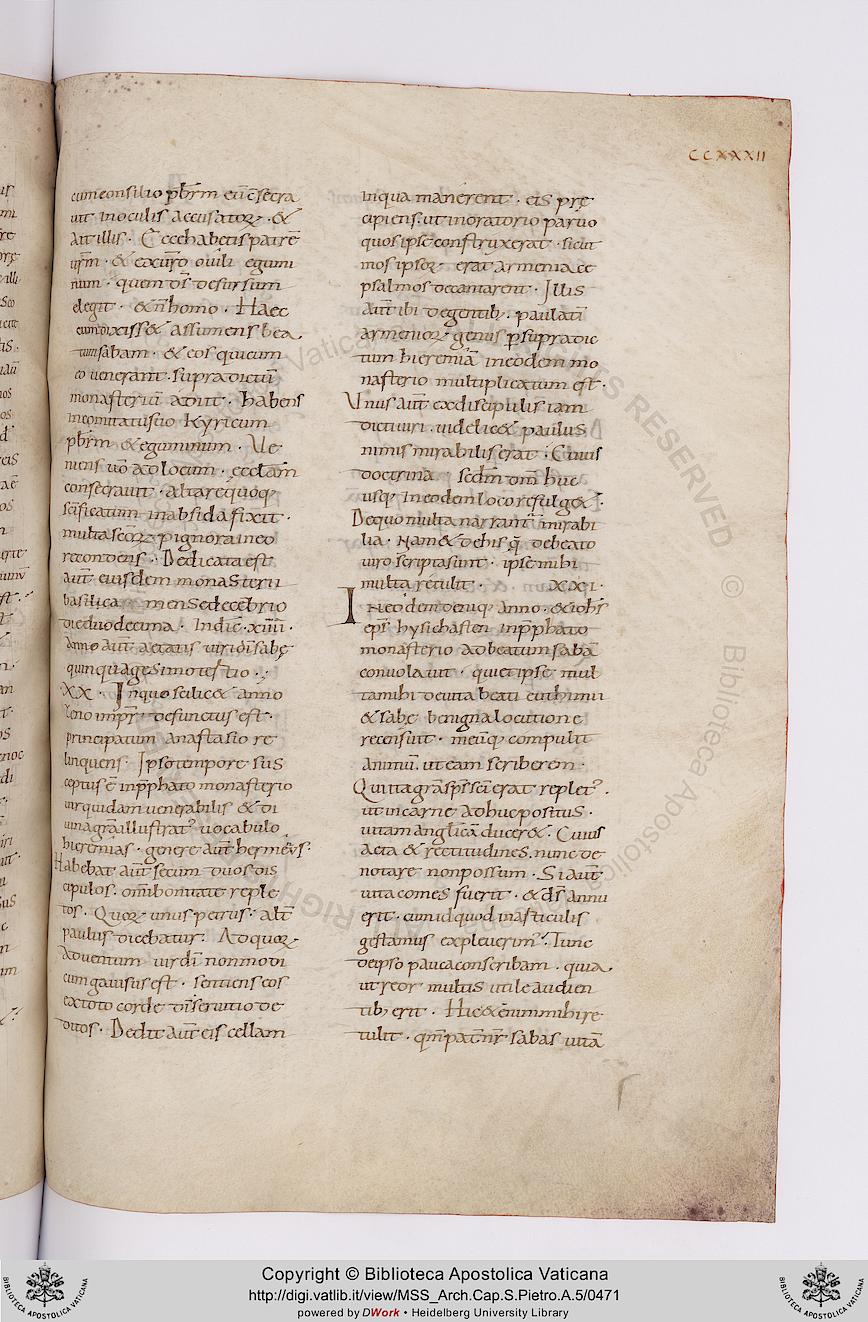 CCXXXII
cum consilio pb̄rm eū c̄secra
uit in oculis accusatoꝝ · &
ait illis · Ecce habetis patrē
ur̄m · & ex ur̄o ouili egumi
num · quem d̄s desursum
elegit · & n̄ homo · Haec
cum dixiss& assumens bea
tum sabam · & eos qui cum
eo uenerant · supradictū
monasteriū adiit · habens
in comitatu suo Kyricum
pb̄rm & eguminum · Ue
niens uō ad locum · ecclam̄
consecrauit · altareq̄ quoq;
sc̄ificatum in absida fixit ·
multa sc̄oꝝ pignora in eo
recondens · Dedicata est
aut̄ eiusdem monasterii
basilica · mense decēbrio
die duodecima · Indic̄ · xiiii ·
Anno aut̄ aetatis uiri dī sabę
quinquagesimo tertio ·
XX · In quo scilic& anno
Zeno imp̄r · defunctus est ·
principatum anastasio re
linquens · Ipso tempore sus
ceptus ē in p̄phato monasterio
uir quidam uenerabilis & di
uina gr̄a illustrat᾿ uocabulo
hieremias · genere aut̄ hermeus ·
Habebat aut̄ secum duos dis
cipulos · om̄i bonitate reple
tos · Quoꝝ unus petrus · alt̄
paulus dicebatur · Ad quoꝝ
aduentum uir dī non modi
cum gauisus est · sentiens eos
ex toto corde dī seruitio de
ditos · Dedit aut̄ eis cellam
in qua manerent · eis prę
cipiens · ut in oratorio paruo
quos ipse construxerat · sicut
mos ipsoꝝ erat armeniace
psalmos decantarent · Illis
aut̄ ibi degentib; · paulatī
armenioꝝ genus p̄ supradic
tum hieremiā in eodem mo
nasterio multiplicatum est ·
Unus aut̄ ex discipulis iam
dicti uiri · uidelic& paulus
nimis mirabilis erat · Cuius
doctrina · sedm̄ om̄ huc
usq; in eodem loco refulg& ·
De quo multa narrant̄ mirabi
lia · Nam & de his q̄ de beato
uiro scripta sunt · ipse mihi
multa retulit · XXI ·
In eodem deniq; anno · & ioh̄s
ep̄s hysichasten in p̄phato
monasterio ad beatum sabā
conuolauit · qui et ipse mul
ta mihi de uita beati euthimii
& sabę benigna locutione
recensuit · meūq; compulit
animū · ut eam scriberem ·
Qui ita gr̄a sp̄s sc̄i erat replet᾿ ·
ut in carne adhuc positus ·
uitam anglicā ducer& · Cuius
acta & rectitudines · nunc de
notare non possum · Si aut̄
uita comes fuerit · & dn̄s annu
erit · cum id quod in asticulis
gestamus expleuerim᾿ · Tunc
de ipso pauca conscribam · quia
ut reor multis utile audien
tib; erit · Hic & enim mihi re
tulit · qm̄ pat̄ nr̄ sabas uitā
Copyright © Biblioteca Apostolica Vaticana
http://digi.vatlib.it/view/MSS_Arch.Cap.S.Pietro.A.5/0471
powered by DWork • Heidelberg University Library